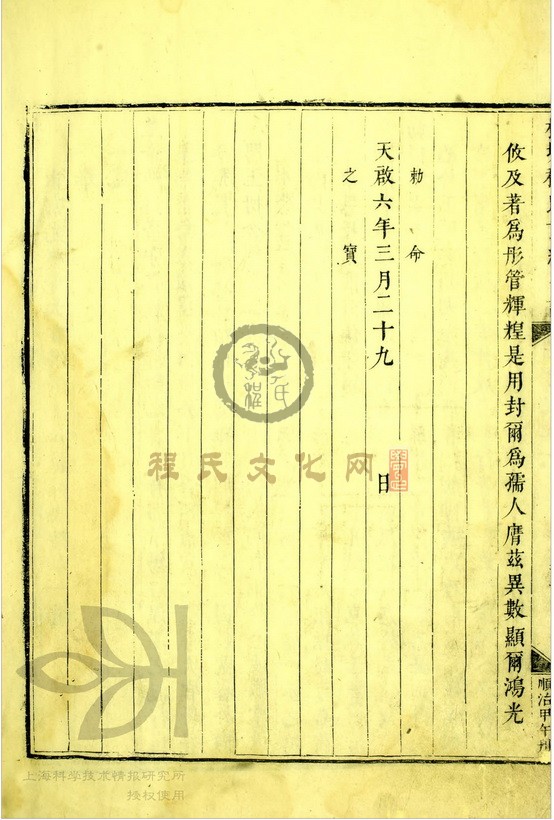 攸及著爲彤管輝煌是用封爾爲孺人膺茲異數顯爾鴻光
勅命
天啟六年三月二十九 日
之寶
順治甲午
程氏文化网
上海科学技术情报研究所
授权使用